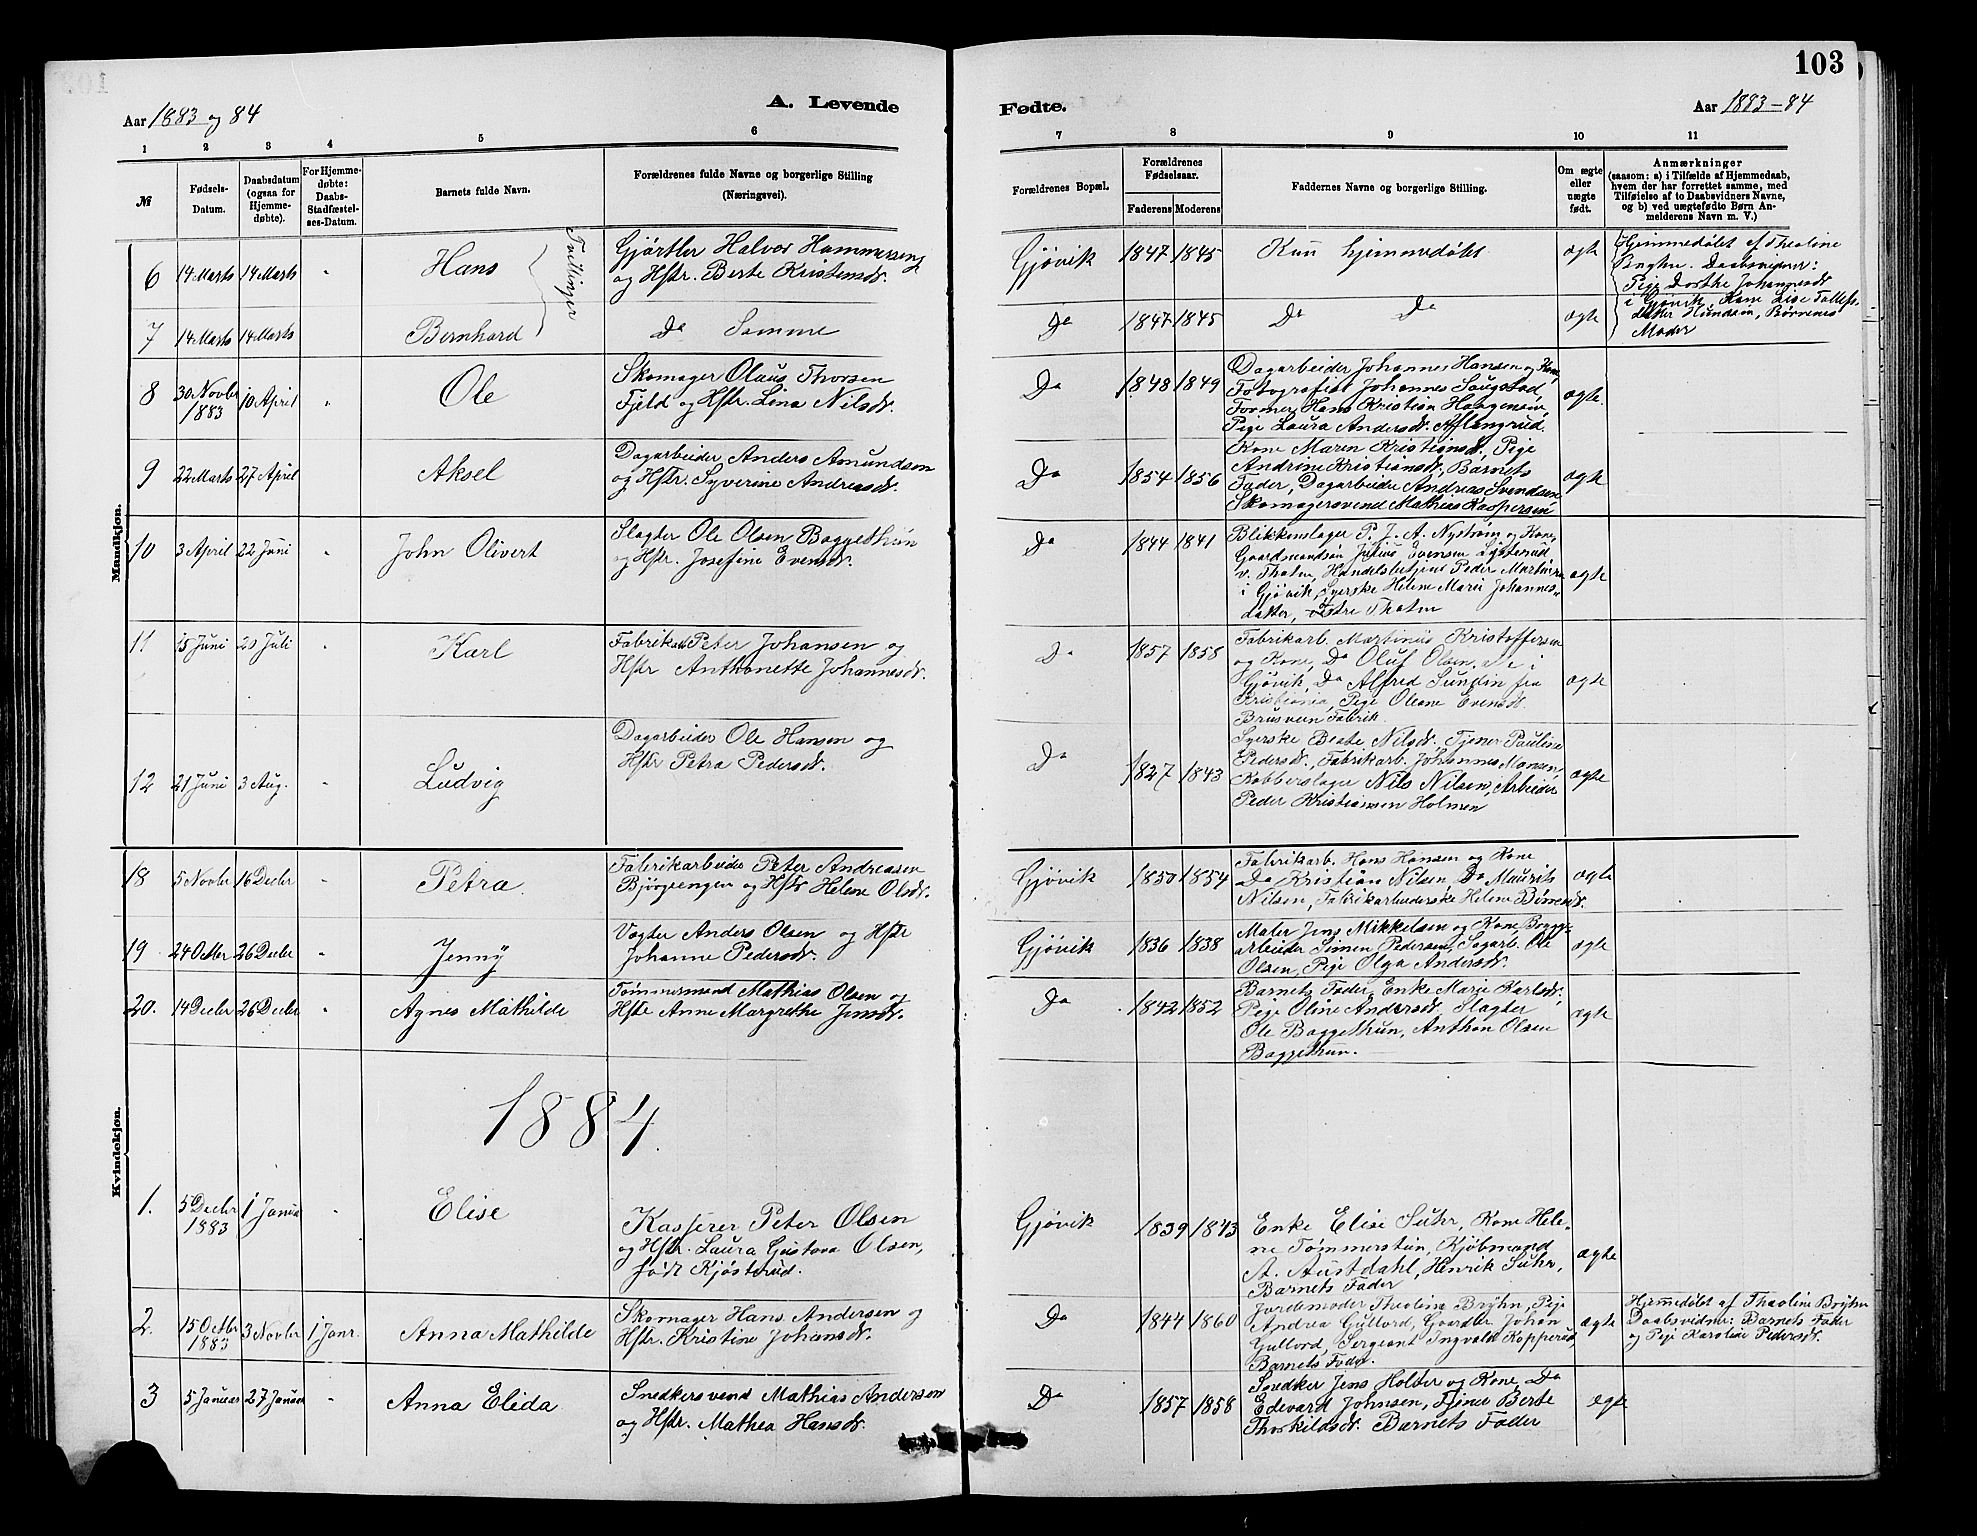 103
Aar 1883 og 84
A. Levende
Fødte.
Aar 1883-84
1 2 3 4 5 6 7 8 9 10 11
№
Fødsels-
Datum.
Daabsdatum
(ogsaa for
Hjemme-
døbte).
For Hjemme-
døbte:
Daabs-
Stadfæstel-
ses-Datum.
Barnets fulde Navn.
Forældrenes fulde Navne og borgerlige Stilling
(Næringsvei).
Forældrenes Bopæl.
Forældrenes
Fødselsaar.
Faderens Moderens
Faddernes Navne og borgerlige Stilling.
Om ægte
eller
uægte
født.
Anmærkninger
(saasom: a) i Tilfælde af Hjemmedaab,
hvem der har forrettet samme, med
Tilføielse af to Daabsvidners Navne,
og b) ved uægtefødte Børn An-
melderens Navn m. V.)
Mandkjøn.
6 14 Marts 14 Marts " Hans
Gjørtler Halvor Hammeseng
og Hstr. Berte Kristensdr.
Gjøvik 1847 1845 Kun hjemmedøbt ægte
Hjemmedøbt af Theoline
Bryhn. Daabsvidner:
Pige Dorthe Johannesdr.
i Gjøvik, Kone Lise Tollefs-
datter Hundsen, Børnenes
Moder
Tvillinger
7 14 Marts 14 Marts Bernhard
Do Samme
Do 1847 1845 Do Do ægte
8 30 Novbr 1883 10 April " Ole
Skomager Olaus Thorsen
Fjeld og Hstr. Lina Nilsdr.
Do 1848 1849
Dagarbeider Johannes Hansen og Kone,
Fotografist Johannes Saugstad,
Former Hans Kristian Haagensen,
Pige Laura Andersdr. Aflangrud.
ægte.
9 22 Marts 27 April Aksel
Dagarbeider Anders Amundsen
og Hstr. Syverine Andreasdr.
Do 1854 1856
Kone Maren Kristiansdr., Pige
Andrine Kristiansdr., Barnets
Fader, Dagarbeider Andreas Svendsen
Skomagersvend Mathias Kaspersen
ægte
10 3 April 22 Juni " John Olivert
Slagter Ole Olsen Baggethun
og Hstr. Josefine Evensdr.
Do 1844 1841
Blikkenslager P. J. A. Nystrøm og Kone,
Gaardmandsøn Julius Ivensen
v. Thoten, Handelsbetjent Peder
i Gjøvik, Syerske Helene Marie Johannes-
datter, Østre Thoten
ægte
11 15 Juni 20 Juli " Karl
Fabrikarb. Peter Johansen og
Hstr Anthonette Johannesdr.
Do 1857 1858
Fabrikarb. Martinus Kristoffersen
og Kone, Do Oluf Olsen, i
Gjøvik, Do Alfred Sundin fra
Kristiania, Pige Oleane Evensdr.
Brusveen Fabrik.
ægte
12 21 Juni 3 Aug. - Ludvig
Dagarbeider Ole Hansen og
Hstr Petra Pedersdr.
Do 1827 1843
Syerske Beate Nilsdr., Tjener Pauline
Pedersdr., Fabrikarb. Johannes Monsen,
Kobberslager Nils Nilsen, Arbeider
Peder Kristiansen Holmen
ægte
Kvindekjøn.
18 5 Novbr 16 Decbr - Petra.
Fabrikarbeider Peter Andreasen
Bjørgeengen og Hstr Helene Olsdr.
Gjøvik 1850 1854
Fabrikarb. Hans Hansen og Kone
Do Kristian Nilsen, Do Maurits
Nilsen, Fabrikarbeiderske Helene
ægte
19 24 Octbr 26 Decbr " Jenny
Vogter Anders Olsen og Hstr
Johanne Pedersdr.
Gjøvik 1836 1838
Maler Jens Mikkelsen og Kone, Brygg-
arbeider Simen Pedersen, Sagarb. Ole
Olsen, Pige Olga Andersdr.
ægte
20. 14 Decbr 26 Decbr " Agnes Mathilde
Tømmermand Mathias Olsen og
Hstr Anne Margrethe Jensdr.
Do 1842 1852
Barnets Fader, Enke Marie Karlsdr.,
Pige Oline Andersdr. Slagter
Ole Baggethun, Anthon Olsen
Baggethun.
ægte
1884.
1. 5 Decbr 1883 1 Januar - Elise
Kasserer Peter Olsen
og Hstr. Laura Gustava Olsen,
født Kjøsterud.
Gjøvik 1839 1843
Enke Elise Suhr, Kone Hele-
ne Tømmerstuen, Kjøbmand
A. Austdahl, Henrik Suhr,
Barnets Fader
ægte
2. 15 Octbr 1883 3 Novbr 1 Janr. Anna Mathilde
Skomager Hans Andersen og
Hstr. Kristine Johansdr.
Do 1844 1860
Jordemoder Theoline Bryhn, Pige
Andrea Gullord, Gaardbr. Johan
Gullord, Sergeant Ingvald Kopperud,
Barnets Fader.
ægte
Hjemmedøbt af Theoline Bryhn
Daabsvidner: Barnets Fader
og Pige Karoline Pedersdr.
3 5 Januar 27 Januar - Anna Elida
Snedkersvend Mathias Andersen
og Hstr. Mathea Hansdr.
Do 1857 1858
Snedker Jens Holter og Kone, Do
Edevard Johnsen, Tjener Berte
Thorkildsdr. Barnets Fader
ægte